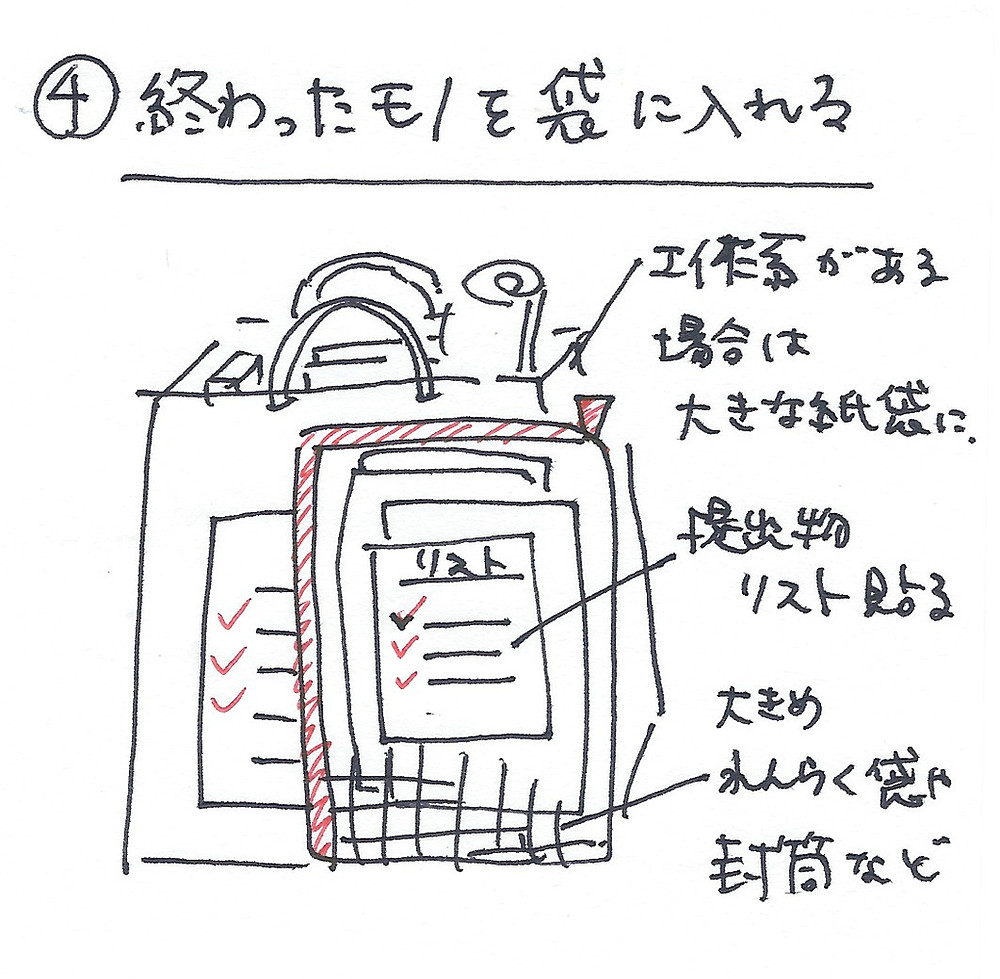 ④ 終わったモノを袋に入れる
工作系がある
場合は
大きな紙袋に.
提出物
リスト貼る
リスト
大きめ
れんらく袋や
封筒など